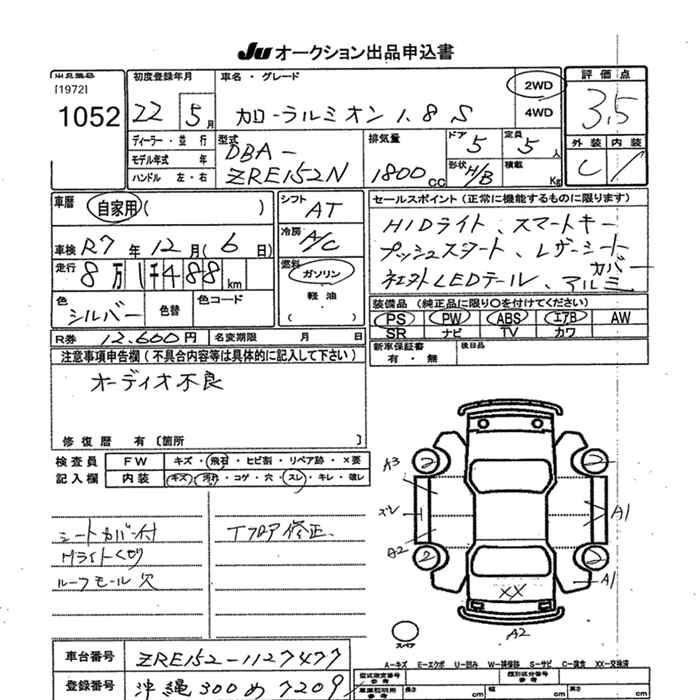 JU オークション出品申込書
出品番号
[1972]
1052
初度登録年月
22 5月
ディーラー・並行
モデル年式 年
ハンドル 左・右
車名・グレード
カローラルミオン 1.8S
2WD
4WD
型式
DBA-
ZRE152N
排気量
1800cc
ドア 5
形状 H/B
定員 5人
積載 Kg
評価点
3.5
外装 内装
C
車歴
自家用( )
車検 R7年12月(6日)
走行 8万1千488km
色 シルバー
色替
色コード
シフト AT
冷房 A/C
燃料 ガソリン
軽油
R券 12,600円 名変期限 月 日
セールスポイント(正常に機能するものに限ります)
HIDライト、スマートキー
プッシュスタート、レザーシート
カバー
社外LEDテール、アルミ
装備品(純正品に限り○を付けてください)
PS PW ABS エアB AW
SR ナビ TV カワ
新車保証書 有・無
後日品
注意事項申告欄(不具合内容等は具体的に記入して下さい)
オーディオ不良
修復歴 有〔箇所 〕
検査員 FW キズ・飛石・ヒビ割・リペア跡・×要
記入欄 内装 キズ・汚れ・コゲ・穴・スレ・キレ・破レ
シートカバー付 Tフロア修正、
Hライトくもり
ルーフモール欠
A3
2
2
スレ
A1
A2
2
2
A1
XX
A2
スペア
A-キズ E-エクボ U-凹み W-補修跡 S-サビ C-腐食 XX-交換済
車台番号 ZRE152-1127477
登録番号 沖縄 300 め 7209
型式指定番号 参考
類別区分番号 参考
車庫証明用 参考 長さ cm 幅 cm 高さ cm